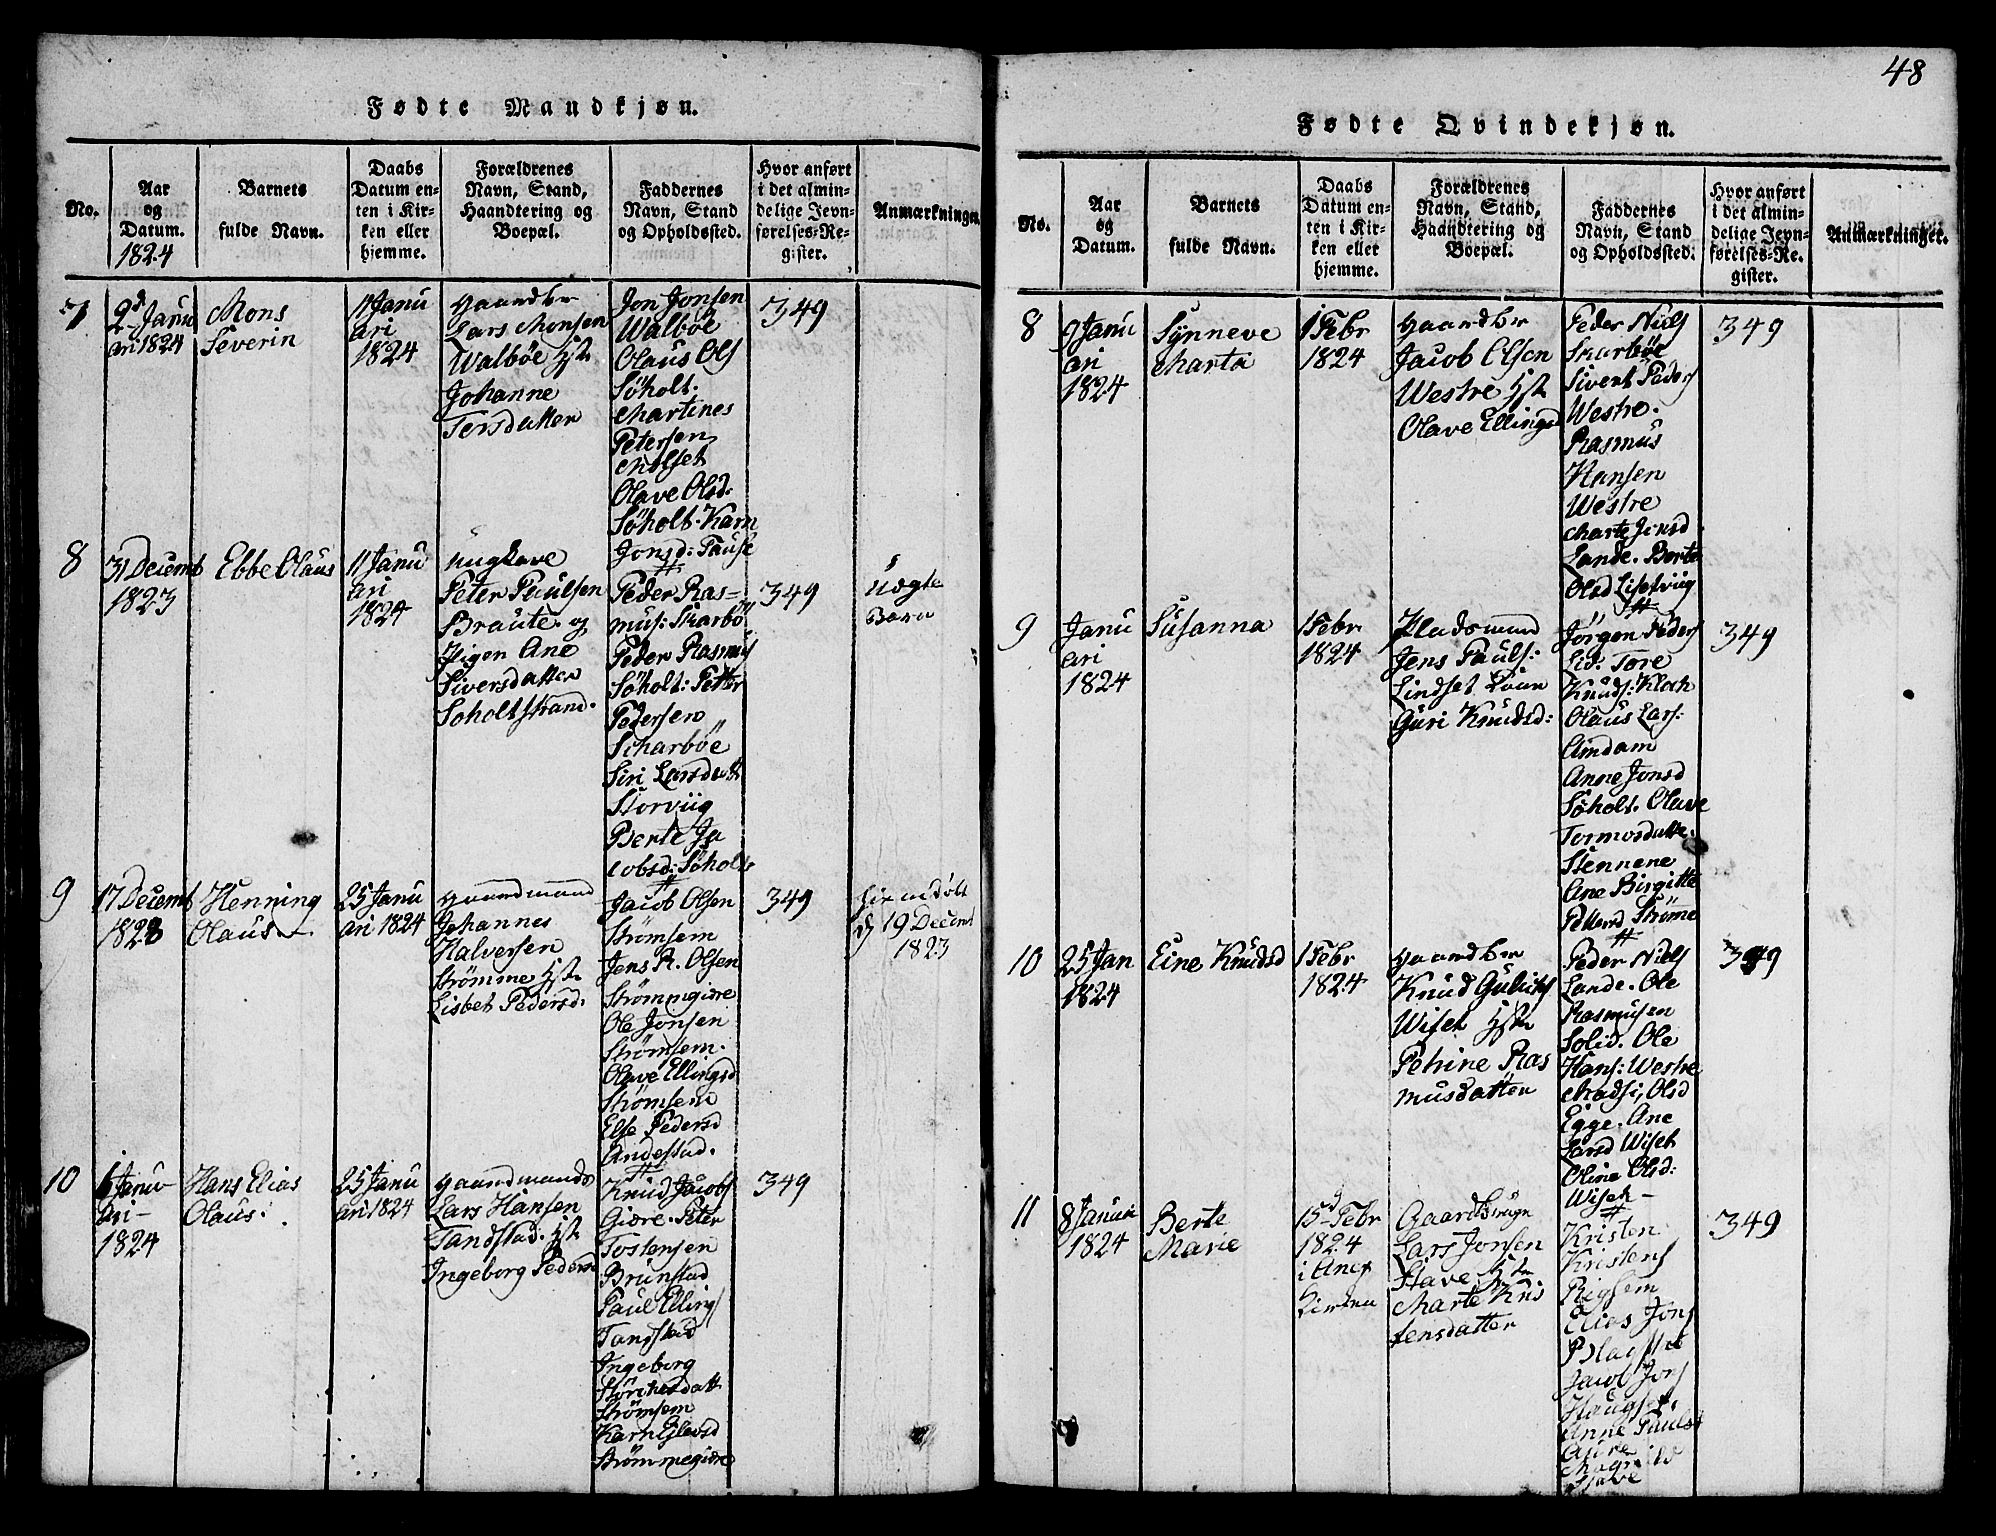 48
Fødte Mandkjøn.
No.
Aar
og
Datum.
1824
Barnets
fulde Navn.
Daabs
Datum en-
ten i Kir-
ken eller
hjemme.
Forældrenes
Navn, Stand,
Haandtering og
Boepæl.
Faddernes
Navn, Stand
og Opholdssted.
Hvor anført
i det almin-
delige Jevn-
førelses-Re-
gister.
Anmærkninger.
7
2d Janu
ari 1824
Mons
Severin
11 Janu
ari
1824
Gaardbr
Lars Monsen
Walbøe Hst
Johanne
Jon Jonsen
Walbøe
Olaus Ols
Søholt.
Martines
Petersen
Molset
Olave Olsd:
Søholt. Karn
Jonsd: Fause
349
8
31 Decemb
1823
Ebbe Olaus
11 Janu
ari
1824
Ungkare
Peter Paulsen
Braute og
Pigen Ane
Siversdatter
Soholtstrand.
Peder Ras=
mus: Skarbø
Peder Rasmus
Søholt: Petter
Pedersen
Scharbøe
Siri Larsdatt
Storviig
Berte Ja
cobsd: Søholt
349
Uægte
Barn
9
17 Decemb
1823
Henning
Olaus
25 Janu
ari 1824
Gaardmand
Johannes
Halversen
Strømme Hst
Lisbet Pedersd.
Jacob Olsen
Strømsem
Jens R. Olsen
Strømmgiere
Ole Jonsen
Strømsem.
Olave Ellingsd
Strømsem
Else Pedersd
Andestad.
349
Hiemdøbt
d 19 Decemb
1823
10
6 Janu-
ari-
1824
Hans Elias
Olaus.
25 Janu
ari 1824
Gaardmands
Lars Hansen
Tandstad. Hst
Ingeborg Pedersd
Knud Jacobs
Giære. Peter
Tostensen
Brunstad
Paul Ellings
Tandstad
Ingeborg
Strømsem
Strømmegiære
349
Fødte Qvindekjøn.
No.
Aar
og
Datum.
Barnets
fulde Navn.
Daabs
Datum en-
ten i Kir-
ken eller
hjemme.
Forældrenes
Navn, Stand,
Haandtering og
Boepæl.
Faddernes
Navn, Stand
og Opholdssted.
Hvor anført
i det almin-
delige Jevn-
førelses-Re-
gister.
Anmærkninger.
8
9 Janu
ari
1824
Synneve
Marta
1 Febr
1824
Gaardbr
Jacob Olsen
Westre Hst
Olave Ellingsd
Peder Niels
Skarbøe
Sivert Peders
Westre.
Rasmus
Hansen
Westre
Marte Jonsd
Lande. Berte
Olsd Lisetviig
349
9
Janu
ari
1824
Susanna
1 Febr
1824
Pladsmand
Jens Pauls:
Lindset
Guri Knudsd:
Jørgen Peders
Lid: Tore
Knuds: Kloch
Olaus Lars:
Amdam
Anne Jonsd
Søholt. Olave
Tormosdatte
Stennene
Ane Birgitte
Pettersd Strøme
349
10
25 Jan
1824
Eine Knudsd
1 Febr
1824
Gaardbr
Knud Guliks
Wiset Hst
Petrine Ras
musdatter
Peder Niels
Lande. Ole
Rasmusen
Solid. Ole
Hans: Westre
Madsi, Olsd
Egge. Ane
Larsd Wiset
Oline Olsd:
Wiset-
349
11
8 Janua
1824
Berte
Marie
15d Febr
1824
i Anex
Kirken
Gaardbrugr
Lars Jonsen
Stave Hst
Marte Kris
tensdatter
Kristen
Kristens
Rigsem
Elias Jons
Jacob Jons
Haugset.
Anne Paulsd
Aure
Stave
349